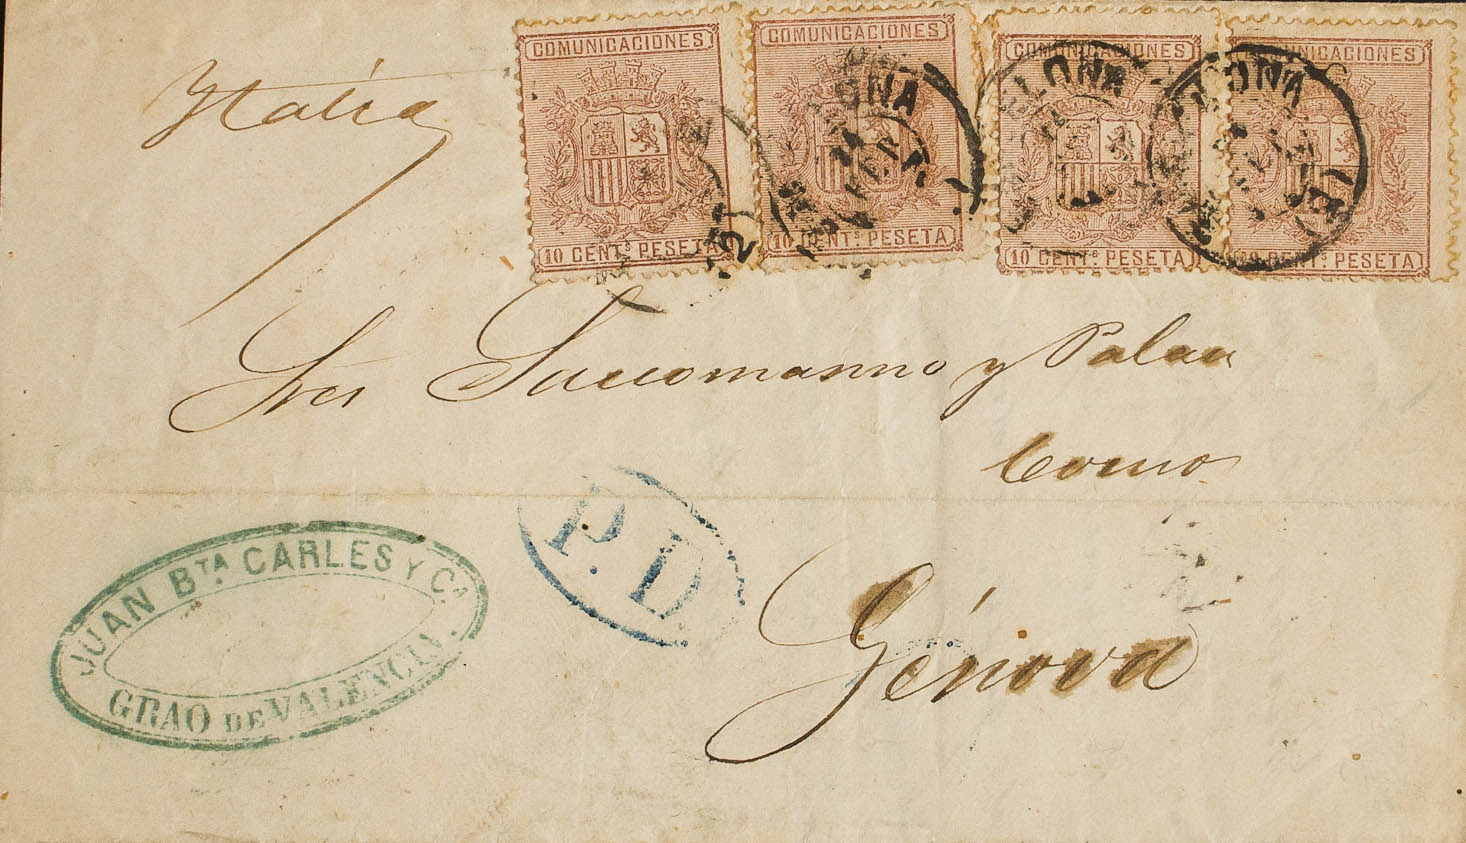 COMUNICACIONES
10 CENTˢ PESETA
COMUNICACIONES
10 CENTˢ PESETA
COMUNICACIONES
10 CENTˢ PESETA
COMUNICACIONES
10 CENTˢ PESETA
Italia
Sres Saccomanno y Palau
Como
P.D
JUAN Bᵀᴬ CARLES Y Cᴬ.
GRAO DE VALENCIA
Génova